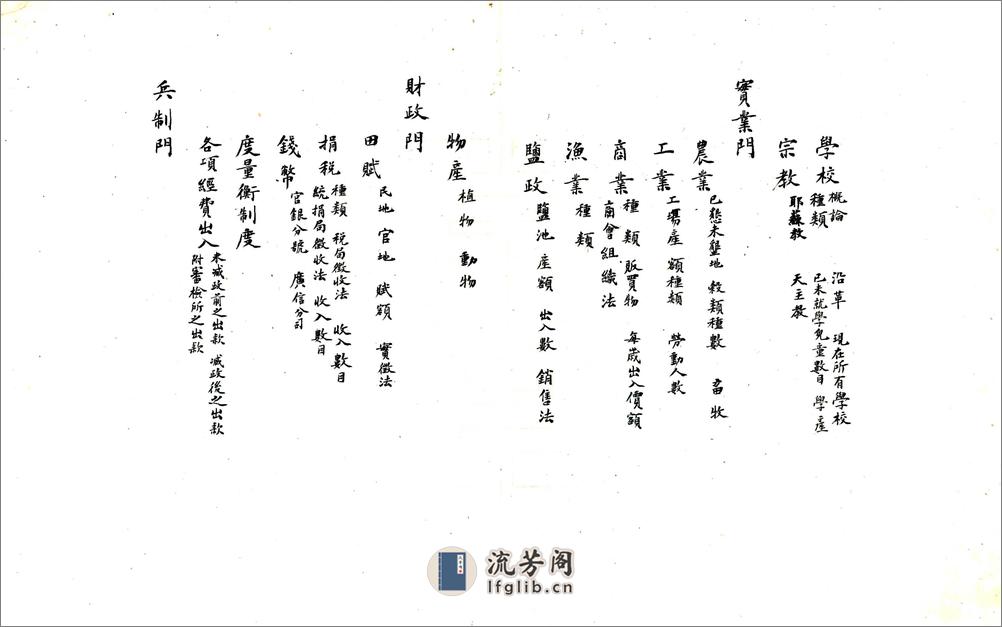 學校 概論 沿革 現在所有學校
種類 已未就學兒童數目 學産
宗教 耶蘇教 天主教
實業門
農業 已懇未墾地 穀類種數 畜牧
工業 工場産額種類 勞動人數
商業 種類 販買物 每歲出入價額
商會組織法
漁業 種類
鹽政 鹽池産額 出入數 銷售法
物産 植物 動物
財政門
田賦 民地官地 賦額 實徵法
捐稅 種類 稅局徵收法 收入數目
統捐局徵收法 收入數目
錢幣 官銀分號 廣信分司
度量衡制度
各項經費出入 未減政前之出款 減政後之出款
附審檢所之出款
兵制門
流芳阁
lfglib.cn